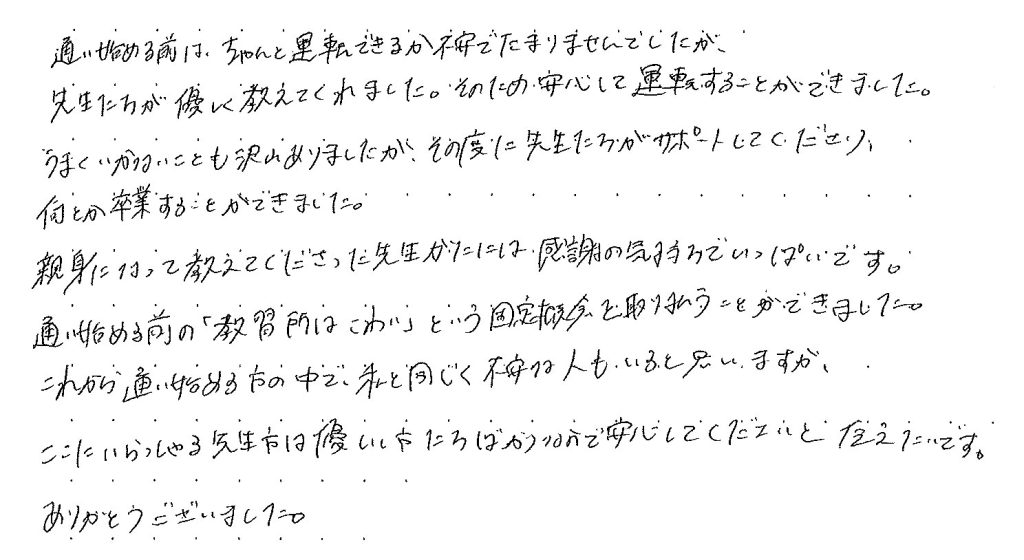 通い始める前は、ちゃんと運転できるか不安でたまりませんでしたが、
先生たちが優しく教えてくれました。そのため安心して運転することができました。
うまくいかないことも沢山ありましたが、その度に先生たちがサポートしてくださり、
何とか卒業することができました。
親身になって教えてくださった先生がたには感謝の気持ちでいっぱいです。
通い始める前の「教習所はこわい」という固定概念を取り払うことができました。
これから通い始める方の中で、私と同じく不安な人もいると思いますが、
ここにいらっしゃる先生方は優しい方たちばかりなので安心してくださいと伝えたいです。
ありがとうございました。